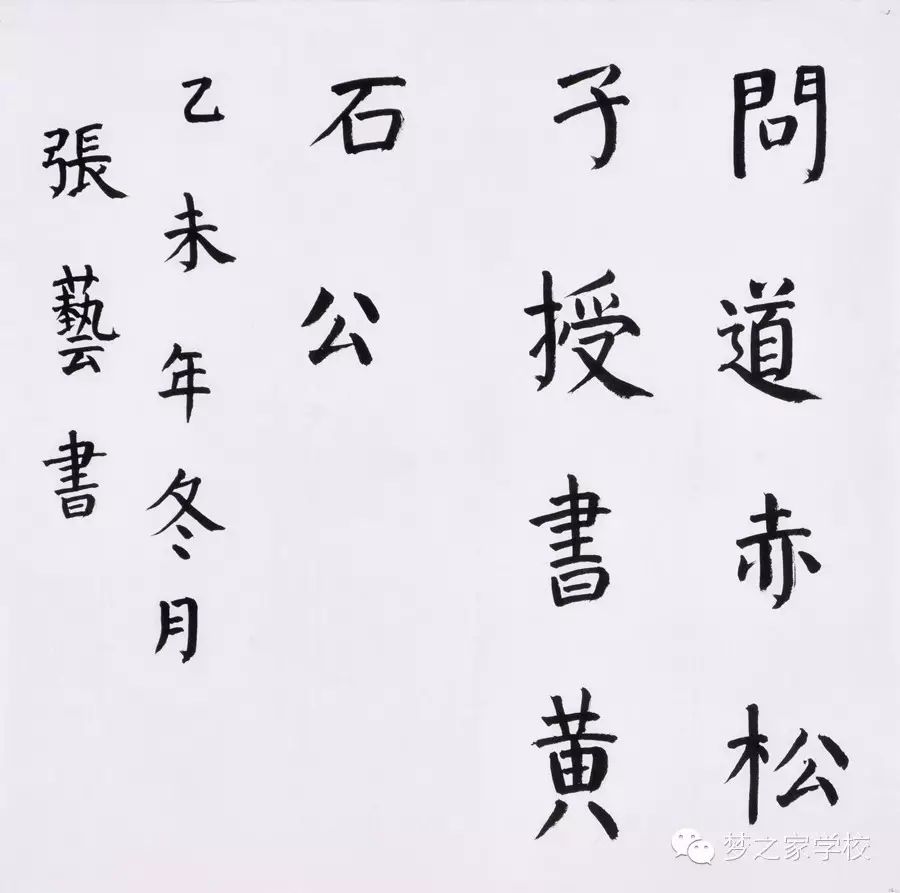 問道赤松
子授書黄
石公
乙未年冬月
張藝書
梦之家学校